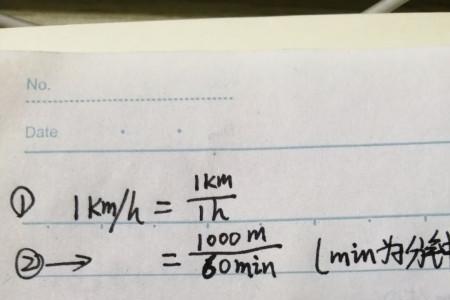 No.
Date
① 1km/h = 1km / 1h
②→ = 1000m / 60min (min为分钟